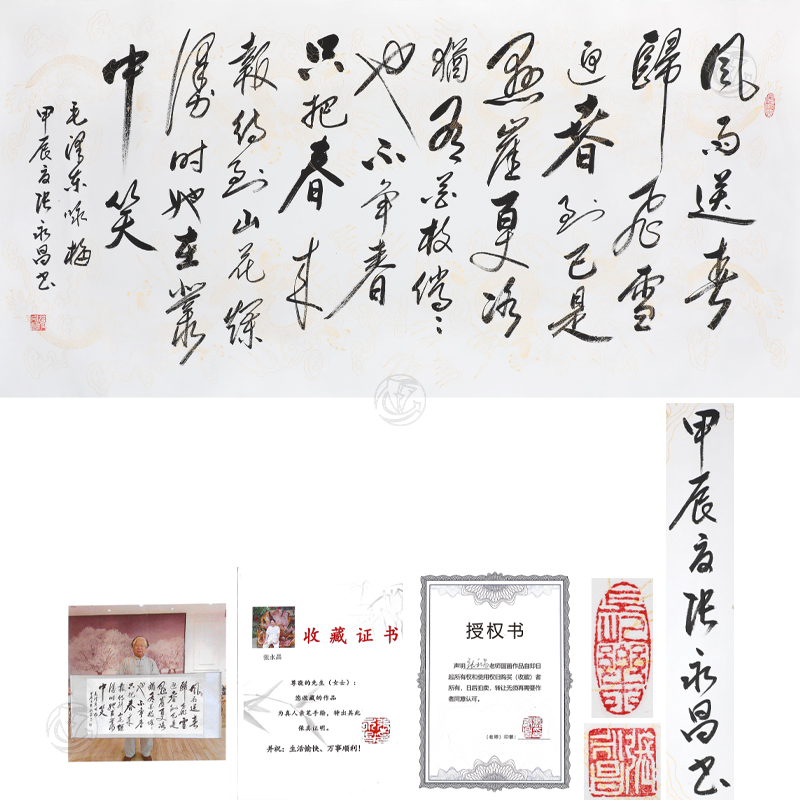 风雨送春
歸飛雪
迎春到已是
懸崖百丈冰
猶有花枝俏〻
也不争春
只把春来
報待到山花爛
漫时她在叢
中笑
毛泽东咏梅
甲辰夏张永昌书
收藏证书
张永昌
尊敬的先生（女士）：
您收藏的作品
为真人亲笔手绘，特出具此
保真证明。
并祝：生活愉快、万事顺利！
授权书
声明张永昌老师国画作品自即日
起所有权和使用权归购买（收藏）者
所有，日后拍卖，转让无须再需要作
者同意认可。
（老师）印章：
甲辰夏张永昌书